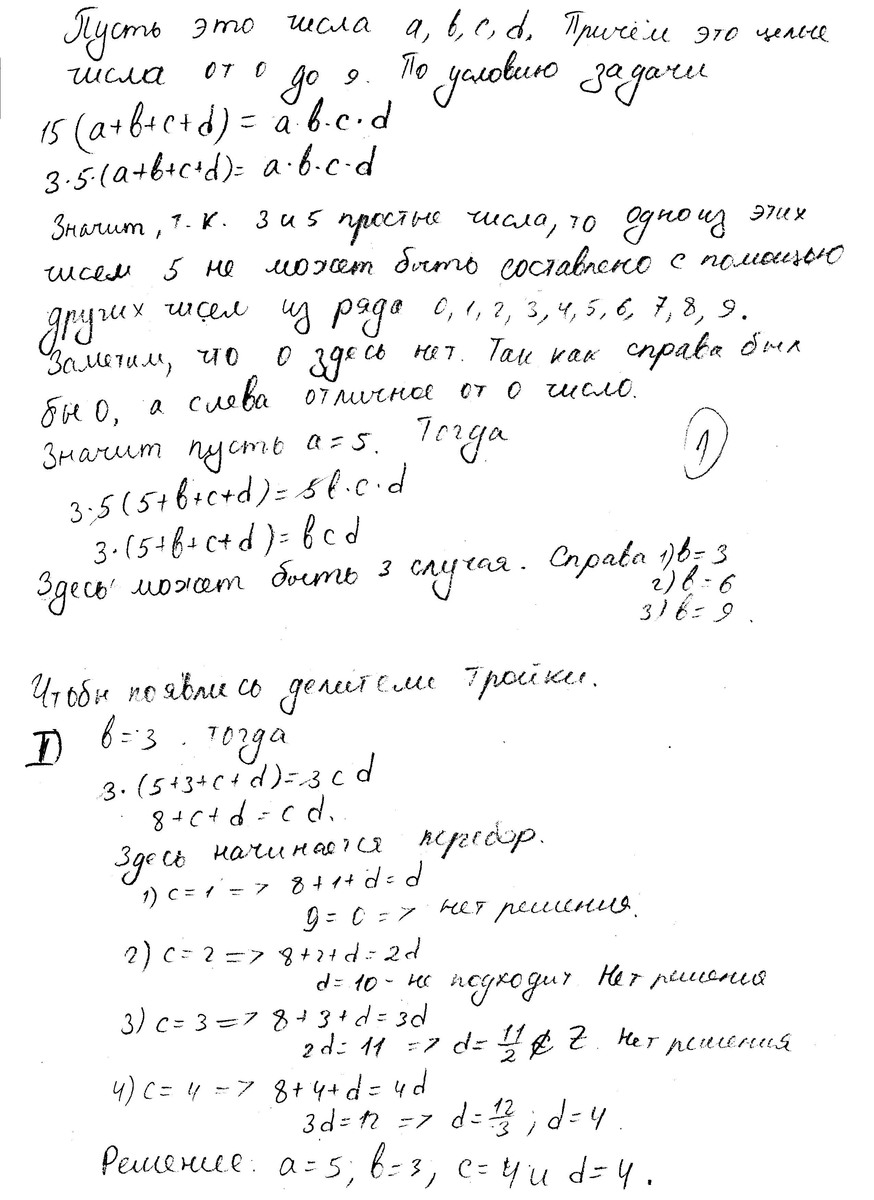 Пусть это числа a, b, c, d. Причём это целые
числа от 0 до 9. По условию задачи
15(a+b+c+d) = a·b·c·d
3·5·(a+b+c+d)= a·b·c·d
Значит, т.к. 3 и 5 простые числа, то одно из этих
чисел 5 не может быть составлено с помощью
других чисел из ряда 0, 1, 2, 3, 4, 5, 6, 7, 8, 9.
Заметим, что 0 здесь нет. Так как справа был
бы 0, а слева отличное от 0 число.
Значит пусть a = 5. Тогда
1
3·5(5+b+c+d)= 5b·c·d
3·(5+b+c+d)= bcd
Здесь может быть 3 случая. Справа 1) b= 3
2) b= 6
3) b= 9.
Чтобы появлись делители тройки.
I) b = 3. Тогда
3·(5+3+c+d)= 3cd
8+c+d = cd.
Здесь начинается перебор.
1) c = 1 => 8+1+d = d
9 = 0 => нет решения.
2) c = 2 => 8+2+d = 2d
d= 10 - не подходит. Нет решения
3) c = 3 => 8+3+d = 3d
2d= 11 => d= 11/2 ∉ Z. Нет решения
4) c = 4 => 8+4+d = 4d
3d=12 => d= 12/3; d=4.
Решение: a=5, b=3, c=4 и d=4.